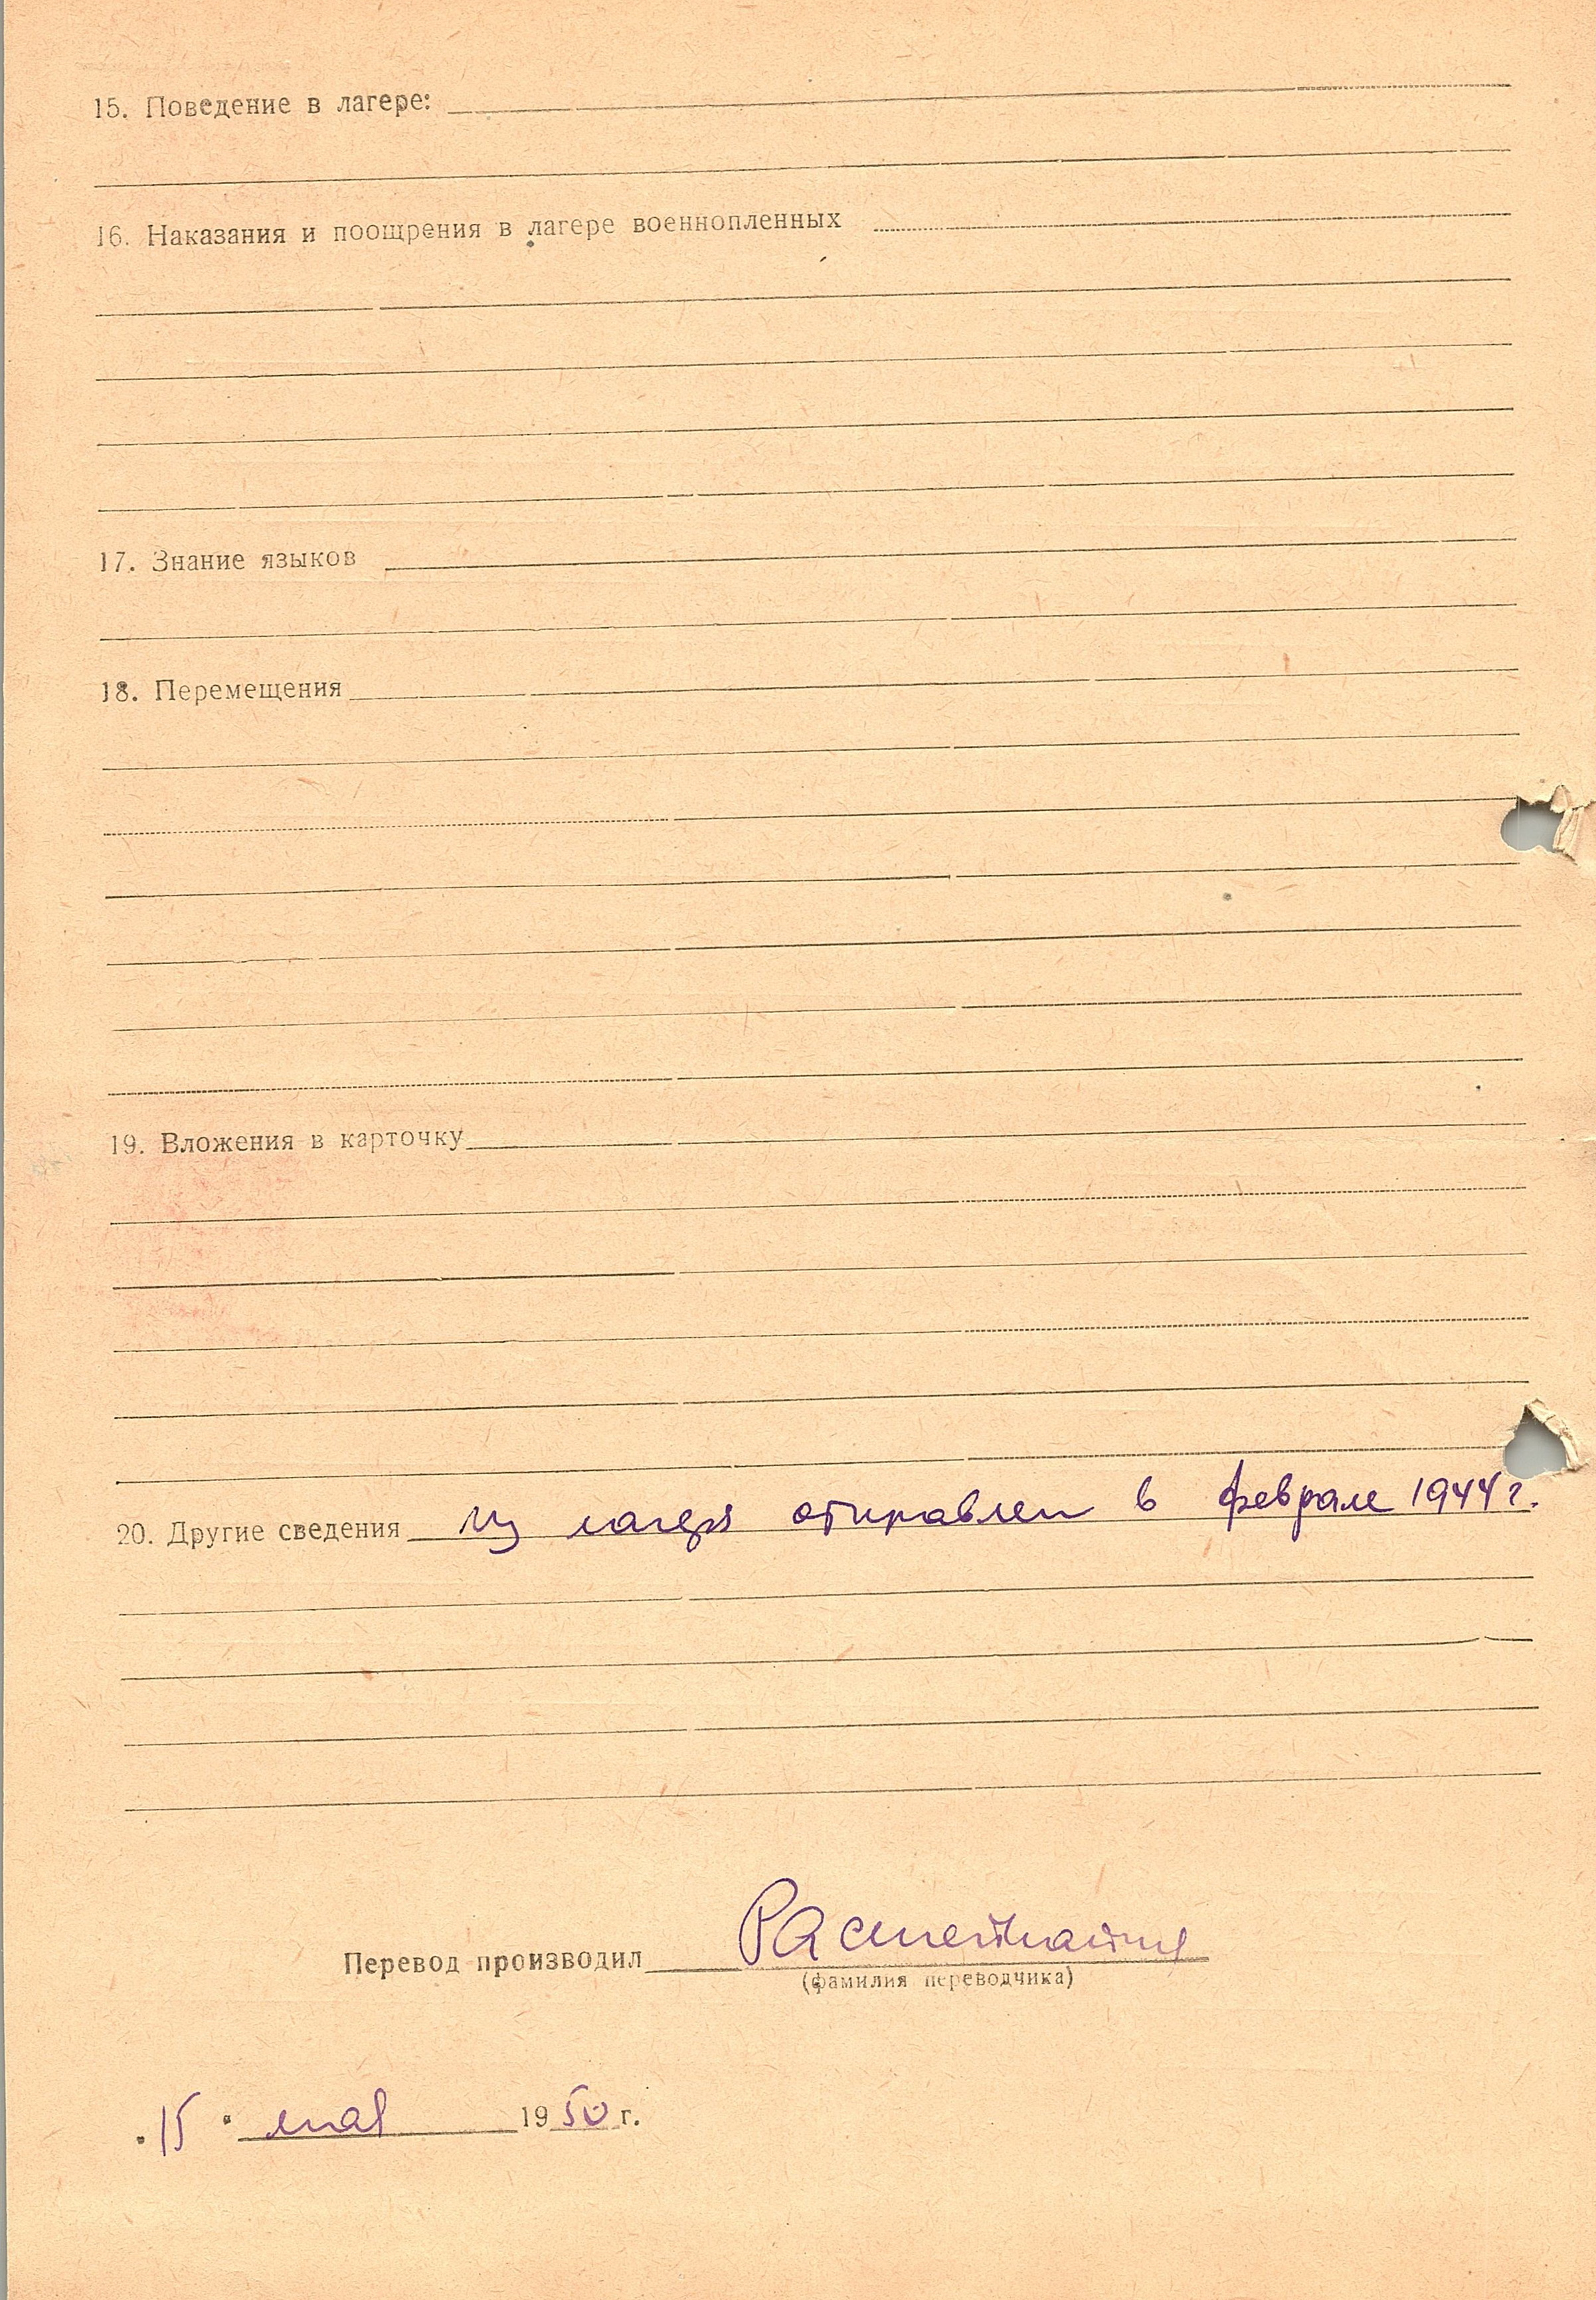 15. Поведение в лагере:
16. Наказания и поощрения в лагере военнопленных
17. Знание языков
18. Перемещения
19. Вложения в карточку
20. Другие сведения из лагеря отправлен в феврале 1944 г.
Перевод производил
(фамилия переводчика)
"15" мая 1950 г.